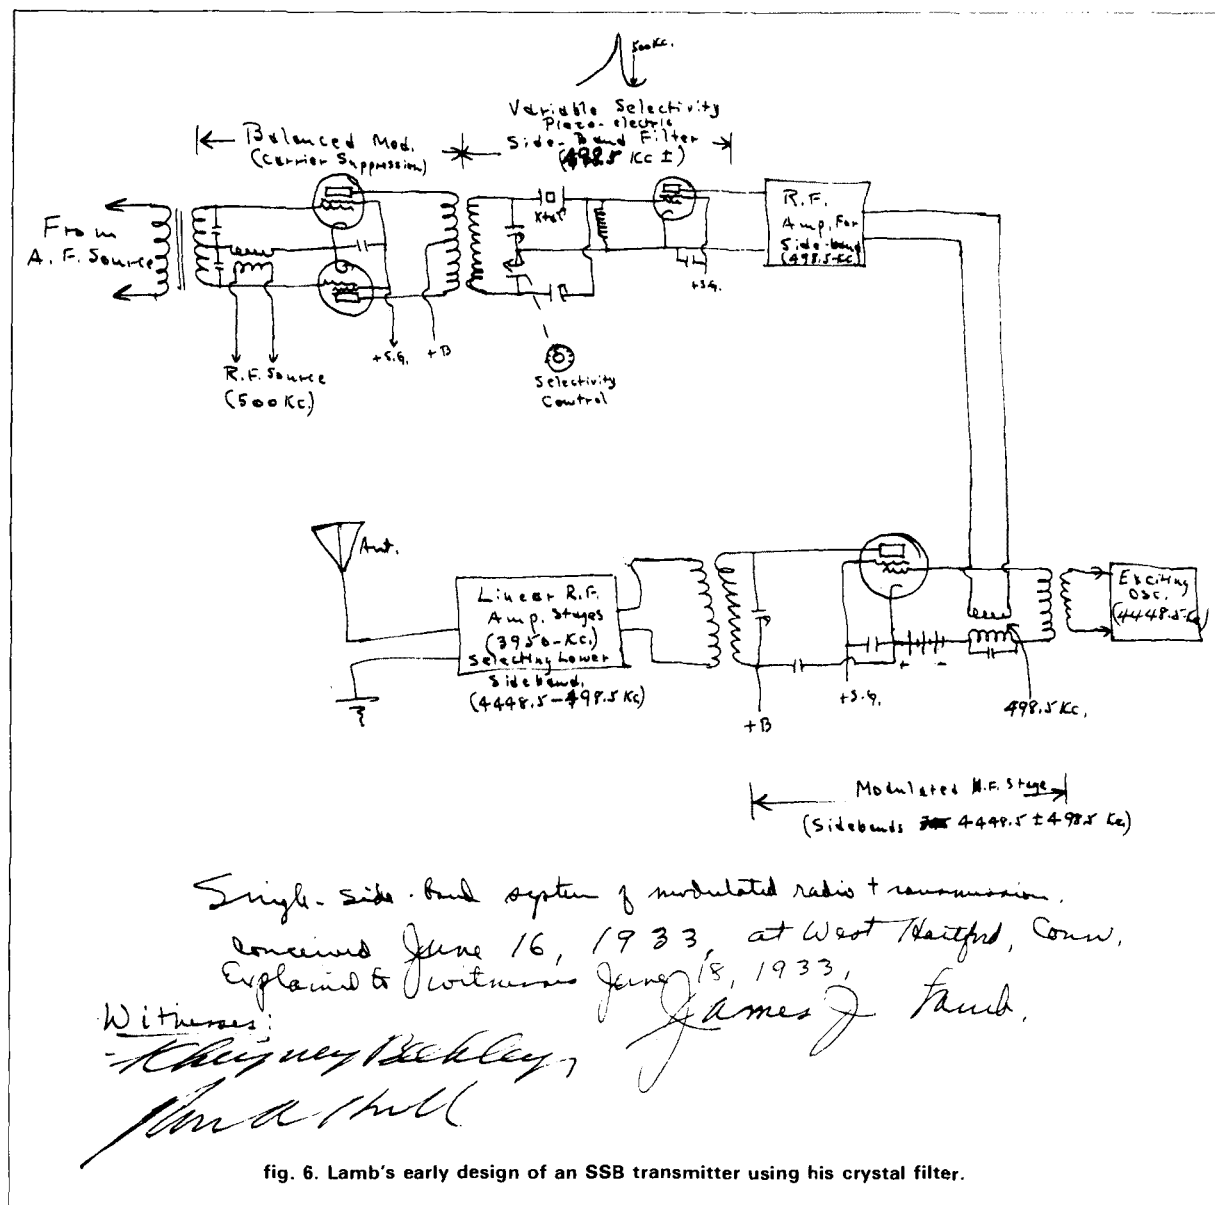 500Kc.
Variable Selectivity
Piezo-electric
Side-Band Filter
(498.5 Kc ±)
Balanced Mod.
(Carrier Suppression)
Xtal
From
A.F. Source
R.F.
Amp. For
Side-band
(498.5-KC)
+S.G.
+S.G.
+B
R.F. Source
(500Kc.)
Selectivity
Control
Ant.
Linear R.F.
Amp. Stages
(3950-Kc.)
Selecting Lower
Sideband.
(4448.5-498.5 Kc)
Exciting
Osc.
(4448.5-Kc)
+ -
+S.G.
498.5 Kc.
+B
Modulated H.F. Stage
(Sidebands 4448.5 ± 498.5 Kc)
Single-side-band system of modulated radio transmission.
conceived June 16, 1933, at West Hartford, Conn.
Explained to witnesses June 18, 1933.
James J Lamb.
Witnesses:
fig. 6. Lamb's early design of an SSB transmitter using his crystal filter.